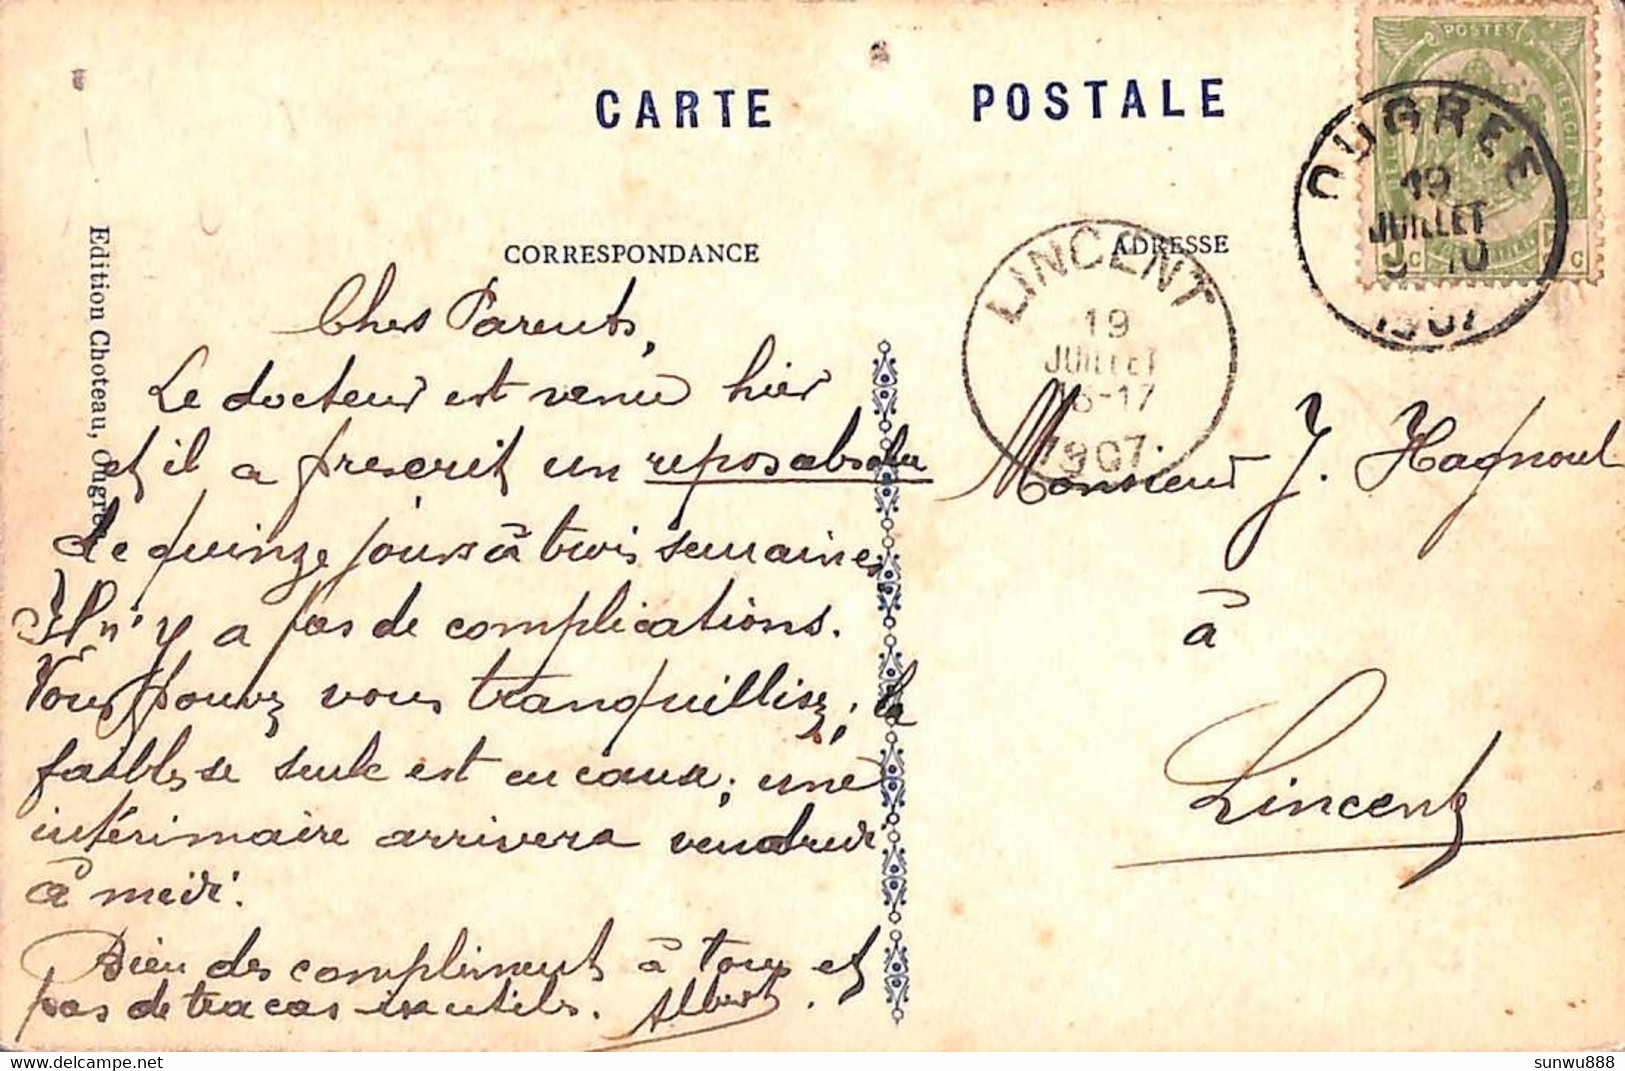 CARTE POSTALE
CORRESPONDANCE
ADRESSE
Edition Choteau, Ougrée
POSTES
OUGREE
19
JUILLET
1907
LINCENT
19
JUILLET
16-17
1907
Chers Parents,
Le docteur est venu hier
et il a prescrit un repos absolu
de quinze jours à trois semaines.
Il n'y a pas de complications.
Vous pouvez vous tranquilliser; la
faiblesse seule est en cause; une
intérimaire arrivera vendredi
à midi.
Bien des compliments à tous et
pas de tracas inutiles. Albert.
Monsieur J. Hagnoul
à
Lincent
sunwu888